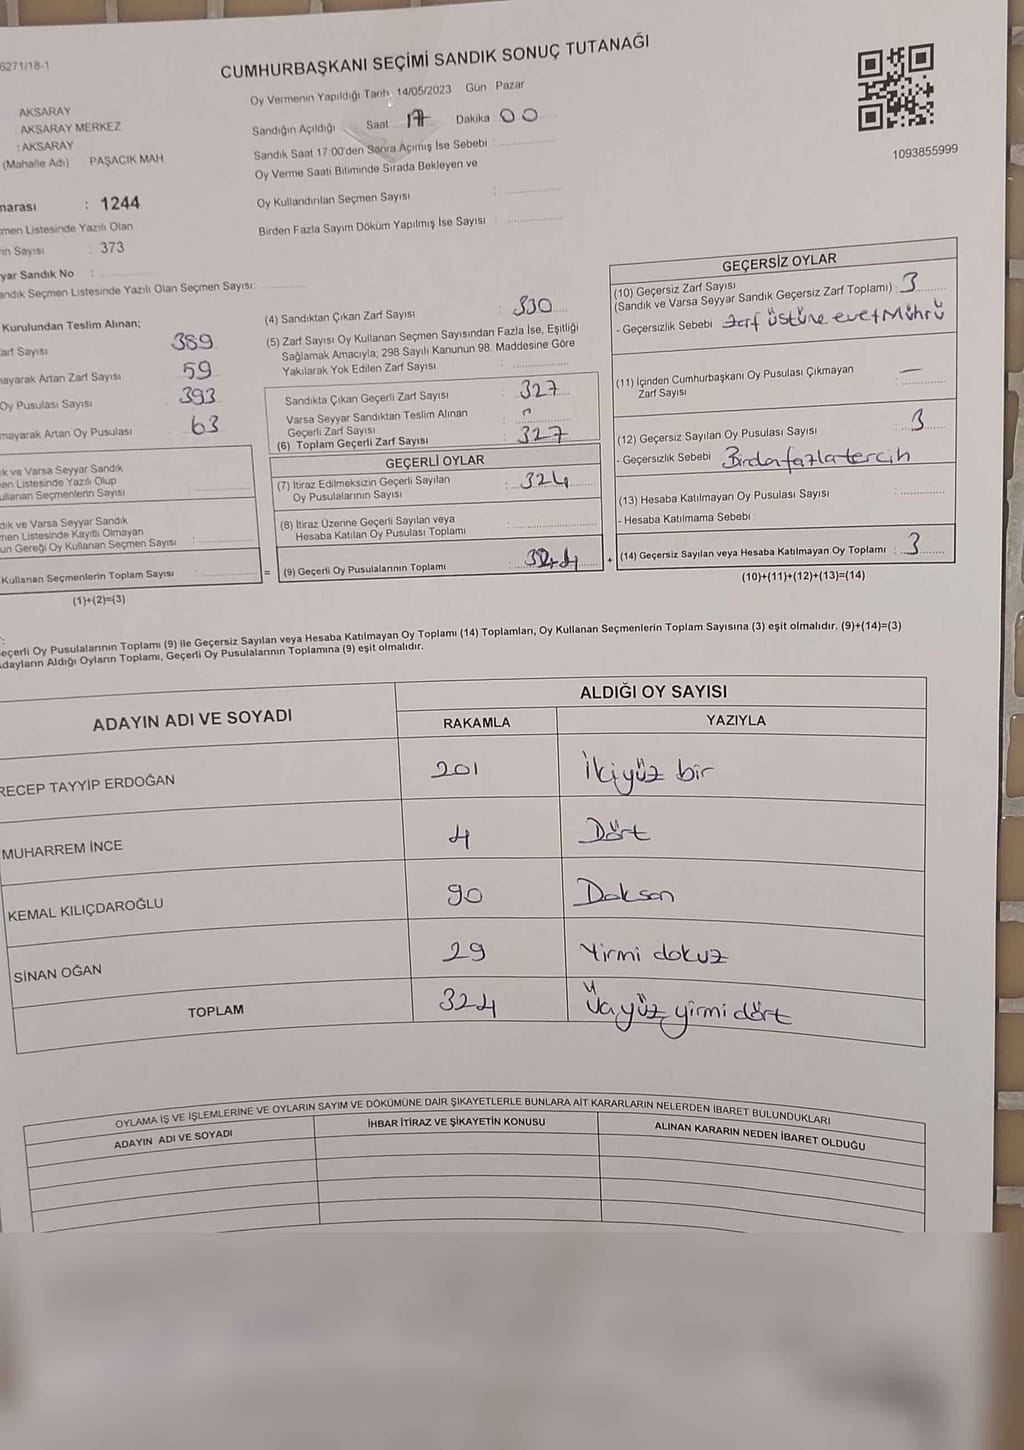 6271/18-1
CUMHURBAŞKANI SEÇİMİ SANDIK SONUÇ TUTANAĞI
Oy Vermenin Yapıldığı Tarih 14/05/2023 Gün Pazar
AKSARAY
AKSARAY MERKEZ
: AKSARAY
(Mahalle Adı) PAŞACIK MAH
Sandığın Açıldığı Saat 17 Dakika 00
Sandık Saat 17:00'den Sonra Açılmış İse Sebebi :
Oy Verme Saati Bitiminde Sırada Bekleyen ve
Oy Kullandırılan Seçmen Sayısı :
Birden Fazla Sayım Döküm Yapılmış İse Sayısı :
1093855999
marası : 1244
men Listesinde Yazılı Olan
in Sayısı : 373
yar Sandık No :
andık Seçmen Listesinde Yazılı Olan Seçmen Sayısı:
Kurulundan Teslim Alınan;
arf Sayısı 389
mayarak Artan Zarf Sayısı 59
Oy Pusulası Sayısı 393
mayarak Artan Oy Pusulası 63
ık ve Varsa Seyyar Sandık
en Listesinde Yazılı Olup
ullanan Seçmenlerin Sayısı :
dık ve Varsa Seyyar Sandık
men Listesinde Kayıtlı Olmayan
un Gereği Oy Kullanan Seçmen Sayısı :
Kullanan Seçmenlerin Toplam Sayısı : =
(1)+(2)=(3)
(4) Sandıktan Çıkan Zarf Sayısı : 330
(5) Zarf Sayısı Oy Kullanan Seçmen Sayısından Fazla İse, Eşitliği
Sağlamak Amacıyla, 298 Sayılı Kanunun 98. Maddesine Göre
Yakılarak Yok Edilen Zarf Sayısı :
Sandıkta Çıkan Geçerli Zarf Sayısı : 327
Varsa Seyyar Sandıktan Teslim Alınan
Geçerli Zarf Sayısı :
(6) Toplam Geçerli Zarf Sayısı : 327
GEÇERLİ OYLAR
(7) İtiraz Edilmeksizin Geçerli Sayılan
Oy Pusulalarının Sayısı : 324
(8) İtiraz Üzerine Geçerli Sayılan veya
Hesaba Katılan Oy Pusulası Toplamı :
(9) Geçerli Oy Pusulalarının Toplamı : 324 +
GEÇERSİZ OYLAR
(10) Geçersiz Zarf Sayısı
(Sandık ve Varsa Seyyar Sandık Geçersiz Zarf Toplamı) : 3
- Geçersizlik Sebebi zarf üstüne evet Mührü
(11) İçinden Cumhurbaşkanı Oy Pusulası Çıkmayan
Zarf Sayısı : —
(12) Geçersiz Sayılan Oy Pusulası Sayısı : 3
- Geçersizlik Sebebi Birdafazlatercih
(13) Hesaba Katılmayan Oy Pusulası Sayısı :
- Hesaba Katılmama Sebebi :
(14) Geçersiz Sayılan veya Hesaba Katılmayan Oy Toplamı : 3
(10)+(11)+(12)+(13)=(14)
:
eçerli Oy Pusulalarının Toplamı (9) ile Geçersiz Sayılan veya Hesaba Katılmayan Oy Toplamı (14) Toplamları, Oy Kullanan Seçmenlerin Toplam Sayısına (3) eşit olmalıdır. (9)+(14)=(3)
dayların Aldığı Oyların Toplamı, Geçerli Oy Pusulalarının Toplamına (9) eşit olmalıdır.
ADAYIN ADI VE SOYADI
ALDIĞI OY SAYISI
RAKAMLA YAZIYLA
RECEP TAYYİP ERDOĞAN 201 İkiyüz bir
MUHARREM İNCE 4 Dört
KEMAL KILIÇDAROĞLU 90 Doksan
SİNAN OĞAN 29 Yirmi dokuz
TOPLAM 324 Üçyüz yirmi dört
OYLAMA İŞ VE İŞLEMLERİNE VE OYLARIN SAYIM VE DÖKÜMÜNE DAİR ŞİKAYETLERLE BUNLARA AİT KARARLARIN NELERDEN İBARET BULUNDUKLARI
ADAYIN ADI VE SOYADI İHBAR İTİRAZ VE ŞİKAYETİN KONUSU ALINAN KARARIN NEDEN İBARET OLDUĞU